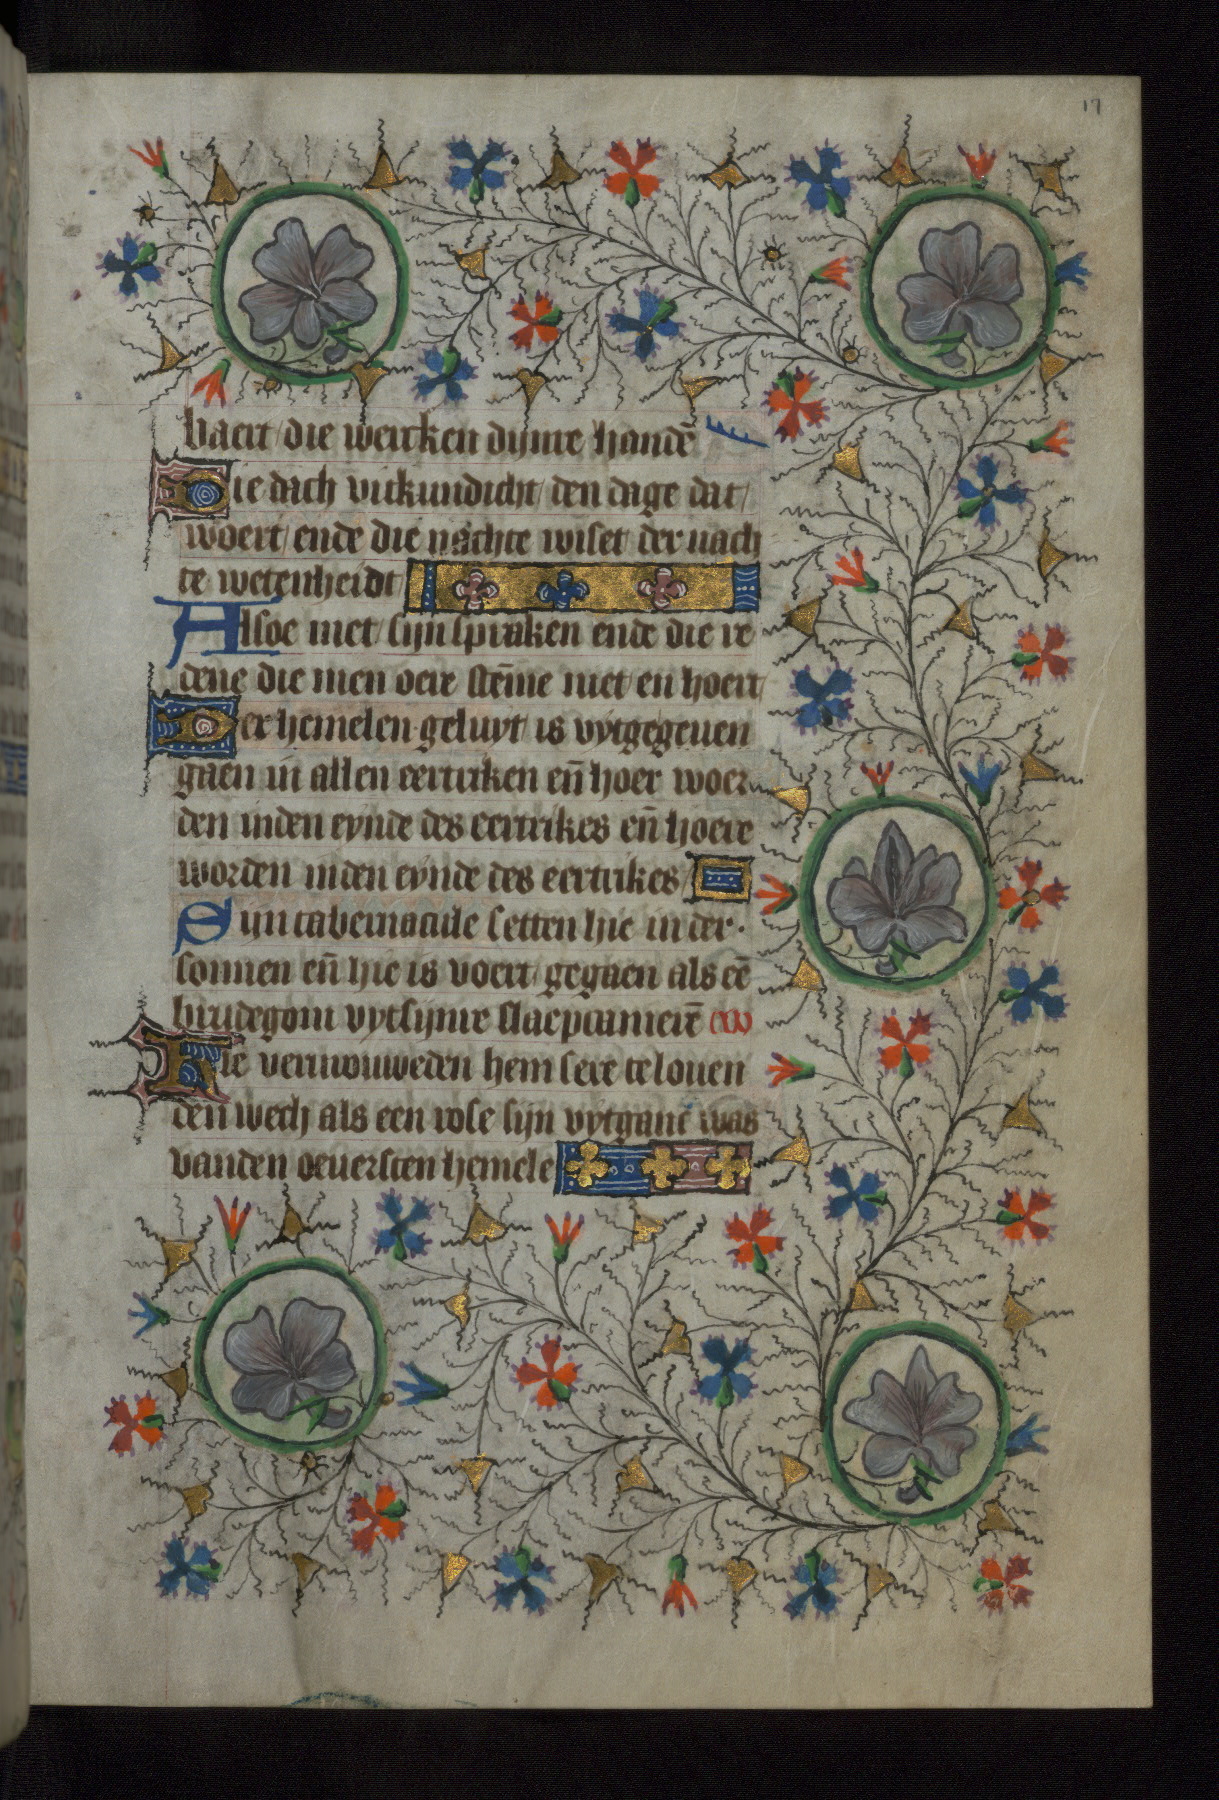 17
baert die wercken dijnre handē
Die dach vtkundicht den dage dat
woert ende die nachte wiset der nach
te wetenheidt
Alsoe niet sijn spraken ende die re
dene die men oere stēme niet en hoert
Der hemelen geluyt is vytgegeuen
gaen in allen eertriken en̄ hoer woer
den inden eynde des eertrikes en̄ hoere
worden inden eynde des eertrikes
Sijn tabernacule setten hie in der
sonnen en̄ hie is voert gegaen als eē
brudegom vytsijnre slaepcamerē
Hie vernouweden hem sere te louen
den wech als een rose sijn vytganc was
vanden oeuersten hemele